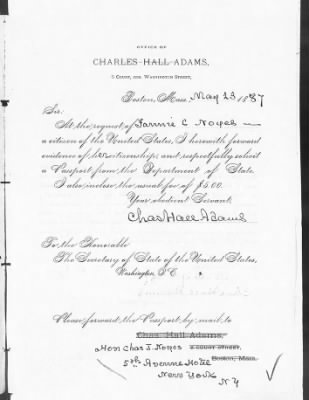 OFFICE OF
CHARLES HALL ADAMS,
5 COURT, COR. WASHINGTON STREET,
Boston, Mass. May 23 1887
Sir:
At the request of Fannie C Noyes
a citizen of the United States, I herewith forward
evidence of her citizenship, and respectfully solicit
a Passport from the Department of State.
I also inclose the usual fee of $5.00.
Your obedient Servant,
Chas Hall Adams
To the Honorable
The Secretary of State of the United States,
Washington, D.C.
Please forward the Passport by mail to
Chas. Hall Adams,
Hon Chas J. Noyes 5 COURT STREET,
5th Avenue Hotel Boston, Mass.
New York
N Y